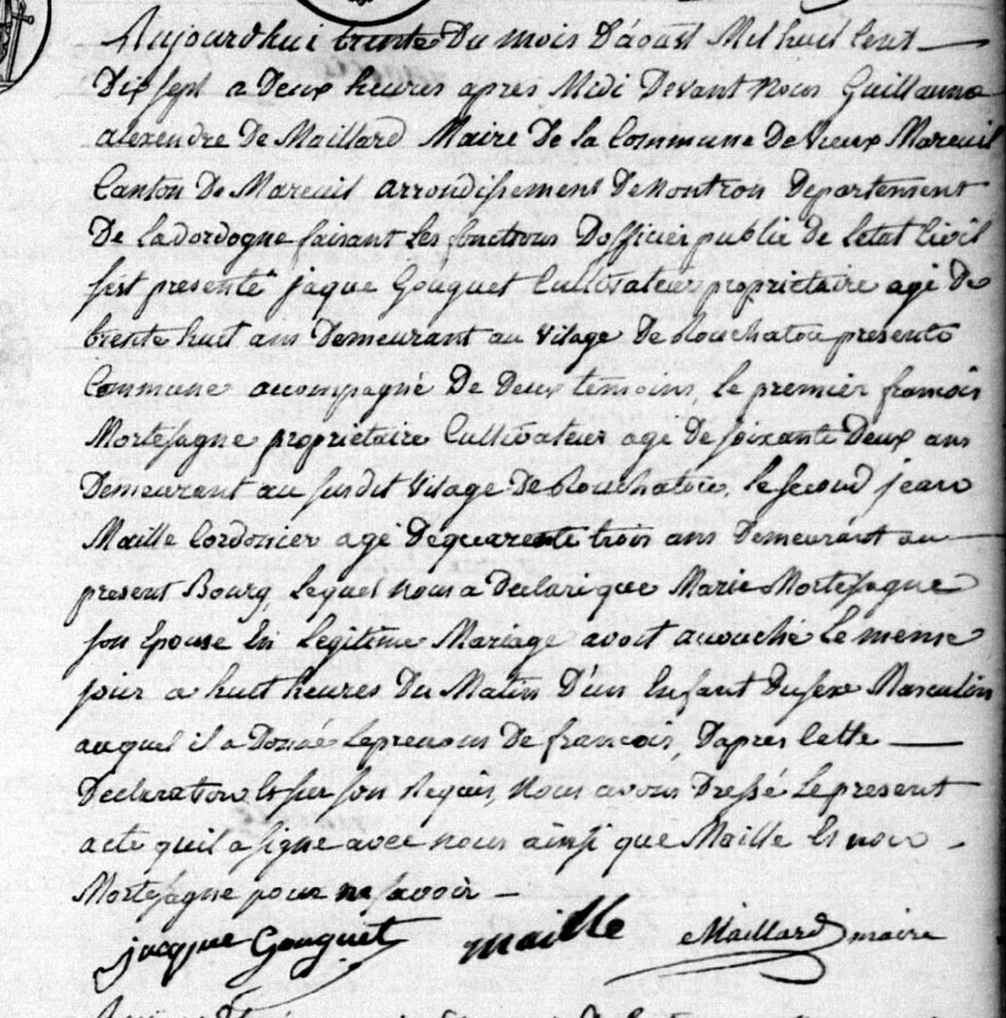 Aujourdhui trente Du mois D'áoust Mil huit Cent
Dix sept a Deux heures apres Midi Devant nous Guillaume
alexendre De Maillard Maire De la Commune De Vieux Mareuil
Canton De Mareuil arrondissement De nontron Departement
De La dordogne faisant Les fonctions D'officier public de letat Civil
s'est presenté jaque Gouguet Cultivateur proprietaire agé De
trente huit ans Demeurant au vilage De presente
Commune accompagné De Deux temoins, Le premier francois
Mortesagne proprietaire Cultivateur agé De soixante Deux ans
Demeurant au susdit vilage De Le second jean
Maille Cordonier agé De quarente trois ans Demeurant au
present Bourg, Lequel nous a Declaré que Marie Mortesagne
son épouse En Legitime Mariage avoit accouché Le meme
jour a huit heures Du Matin D'un Enfant Du sexe Masculin
auquel il a Donné Le prenom De francois, D'apres Cette
Declaration Et sur son Requis, Nous avons Dressé Le present
acte qu'il a signé avec nous ainsi que Maille Et non
Mortesagne pour ne savoir
jacque Gouguet maille Maillard maire